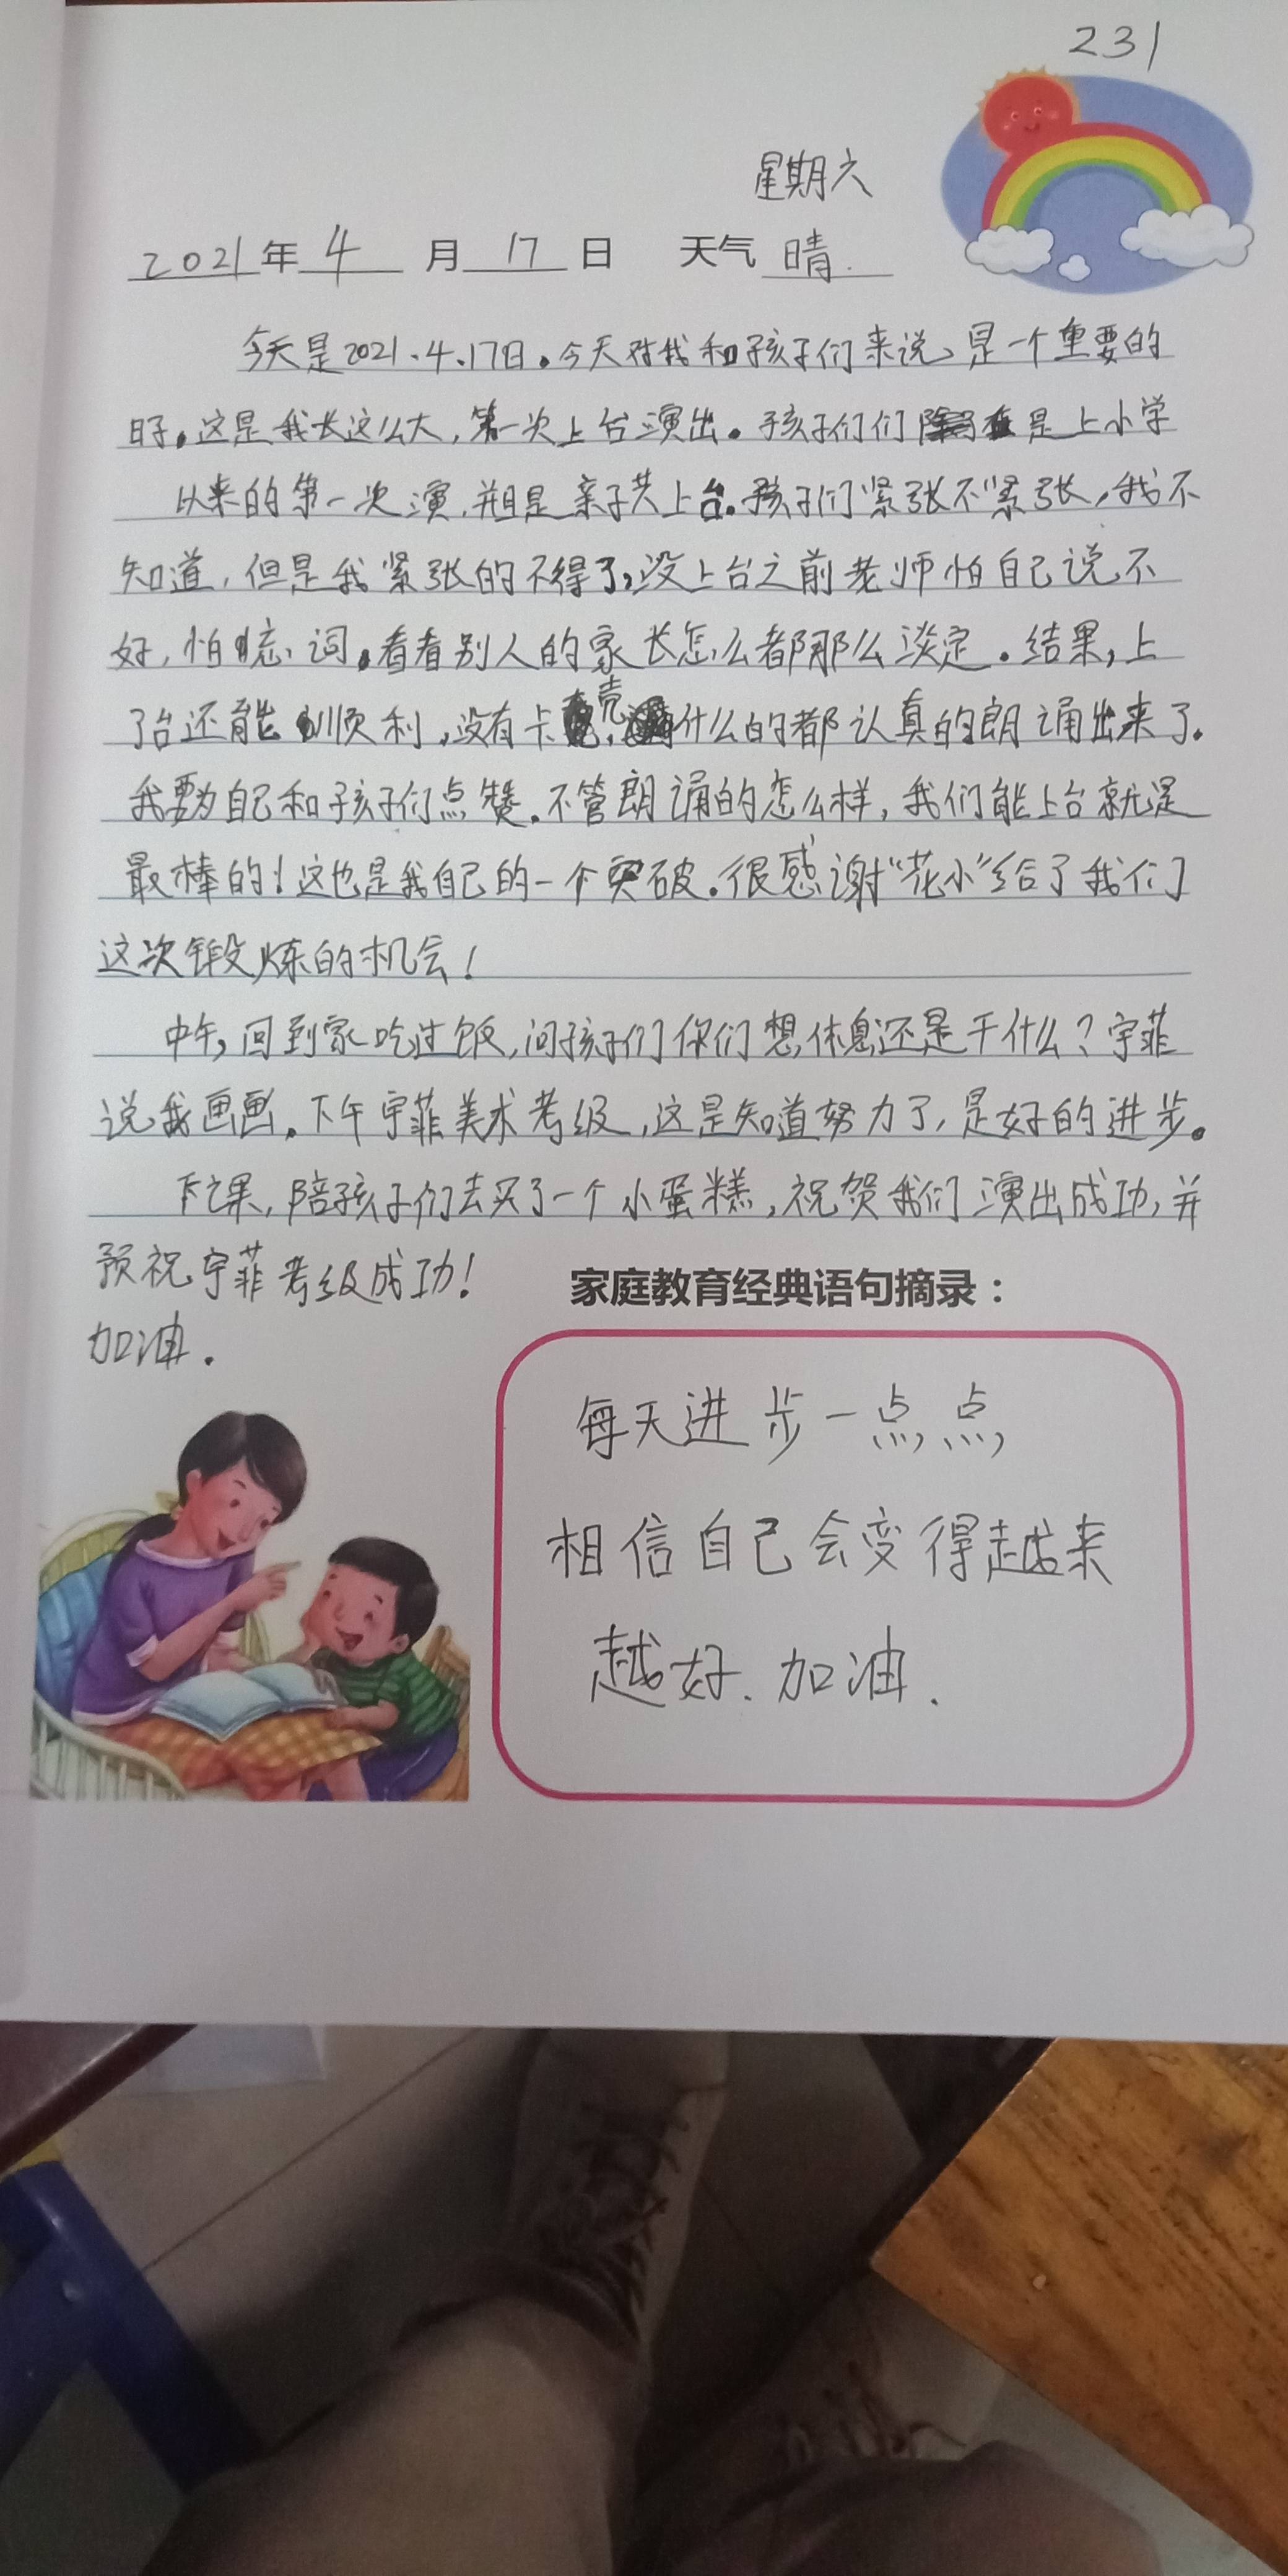 231
星期六
2021年4月17日 天气 晴.
今天是2021.4.17日。今天对我和孩子们来说、是一个重要的
日子。这是我长这么大,第一次上台演出。孩子们们是上小学
以来的第一次演,并且是亲子共上台。孩子们紧张不紧张,我不
知道,但是我紧张的不得了,没上台之前老师怕自己说不
好,怕忘词。看看别人的家长怎么都那么淡定。结果,上
了台还能顺利,没有卡壳,什么的都认真的朗诵出来了.
我要为自己和孩子们点赞.不管朗诵的怎么样,我们能上台就是
最棒的!这也是我自己的一个突破.很感谢“花小”给了我们
这次锻炼的机会!
中午,回到家吃过饭,问孩子们你们想休息还是干什么?宇菲
说我画画。下午宇菲美术考级,这是知道努力了,是好的进步。
下课,陪孩子们去买了一个小蛋糕,祝贺我们演出成功,并
预祝宇菲考级成功!
加油.
家庭教育经典语句摘录:
每天进步一点点,
相信自己会变得越来
越好.加油.